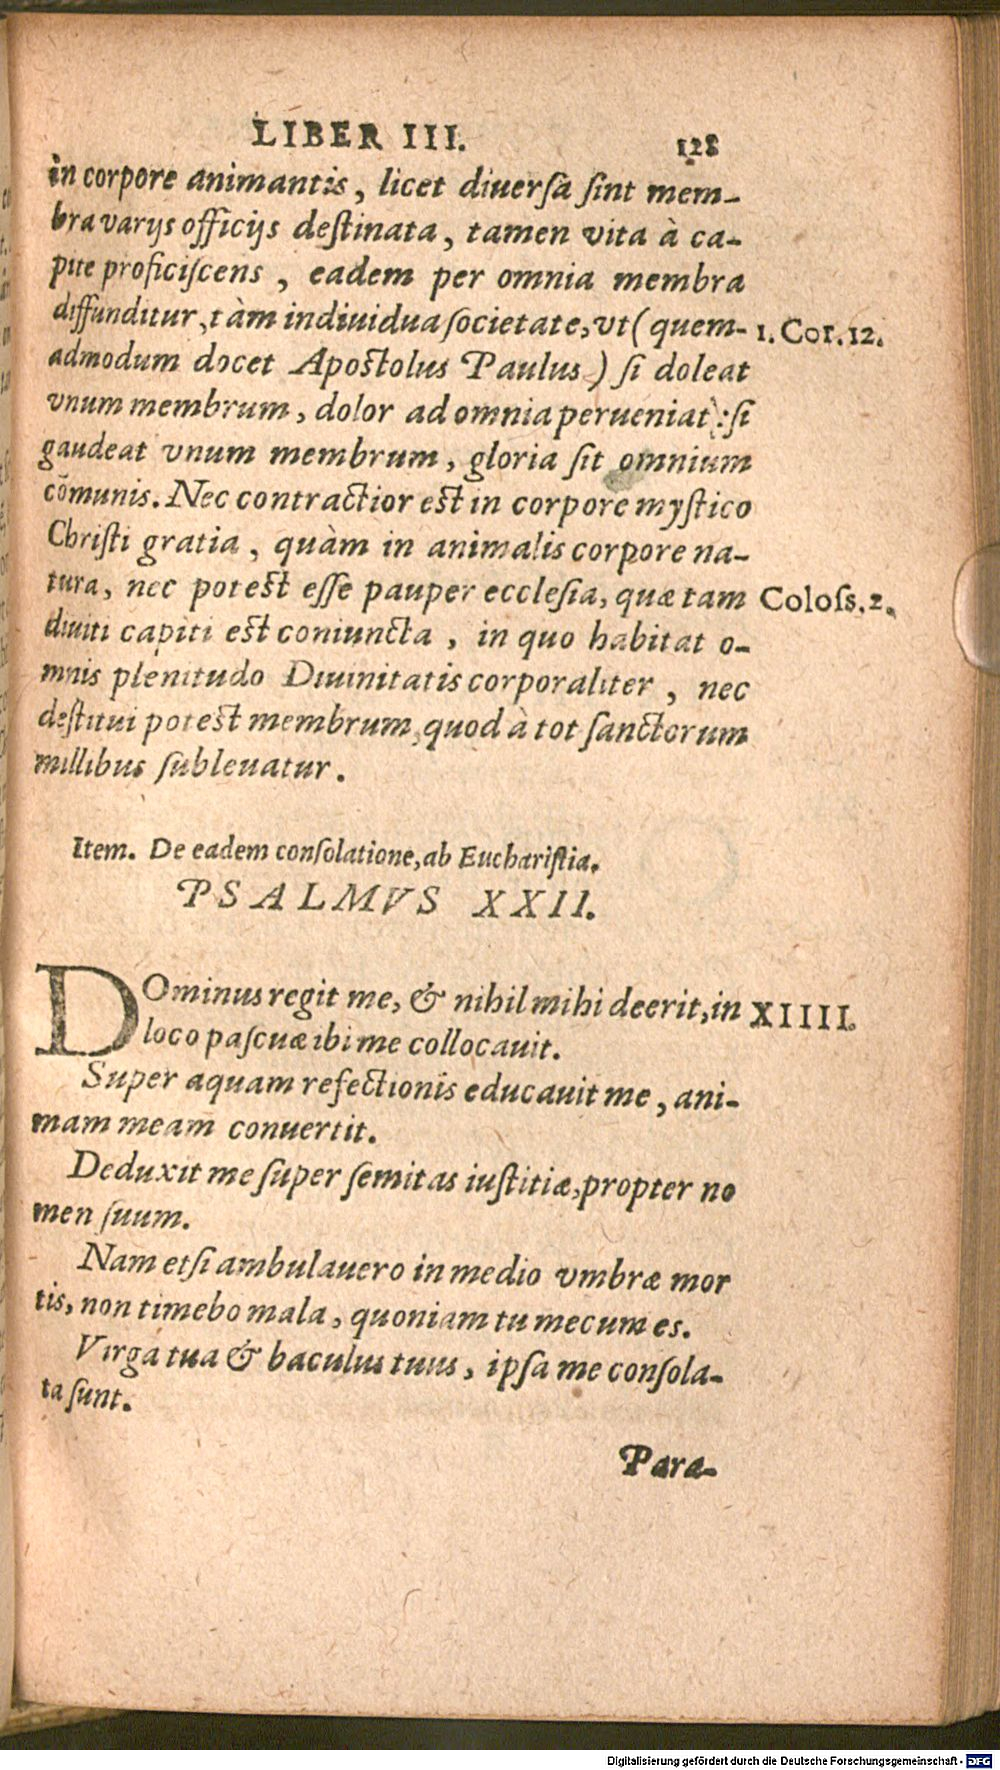 LIBER III. 128
in corpore animantis, licet diuersa sint mem-
bra varijs officijs destinata, tamen vita à ca-
pite proficiscens, eadem per omnia membra
diffunditur, tàm indiuidua societate, vt (quem- 1. Cor. 12.
admodum docet Apostolus Paulus) si doleat
vnum membrum, dolor ad omnia perueniat: si
gaudeat vnum membrum, gloria sit omnium
cōmunis. Nec contractior est in corpore mystico
Christi gratia, quàm in animalis corpore na-
tura, nec potest esse pauper ecclesia, quæ tam Coloss. 2.
diuiti capiti est coniuncta, in quo habitat o-
mnis plenitudo Diuinitatis corporaliter, nec
destitui potest membrum, quod à tot sanctorum
millibus subleuatur.
Item. De eadem consolatione, ab Eucharistia.
PSALMVS XXII.
DOminus regit me, & nihil mihi deerit, in XIIII.
loco pascuæ ibi me collocauit.
Super aquam refectionis educauit me, ani-
mam meam conuertit.
Deduxit me super semitas iustitiæ, propter no
men suum.
Nam etsi ambulauero in medio vmbræ mor
tis, non timebo mala, quoniam tu mecum es.
Virga tua & baculus tuus, ipsa me consola-
ta sunt.
Para-
Digitalisierung gefördert durch die Deutsche Forschungsgemeinschaft - DFG